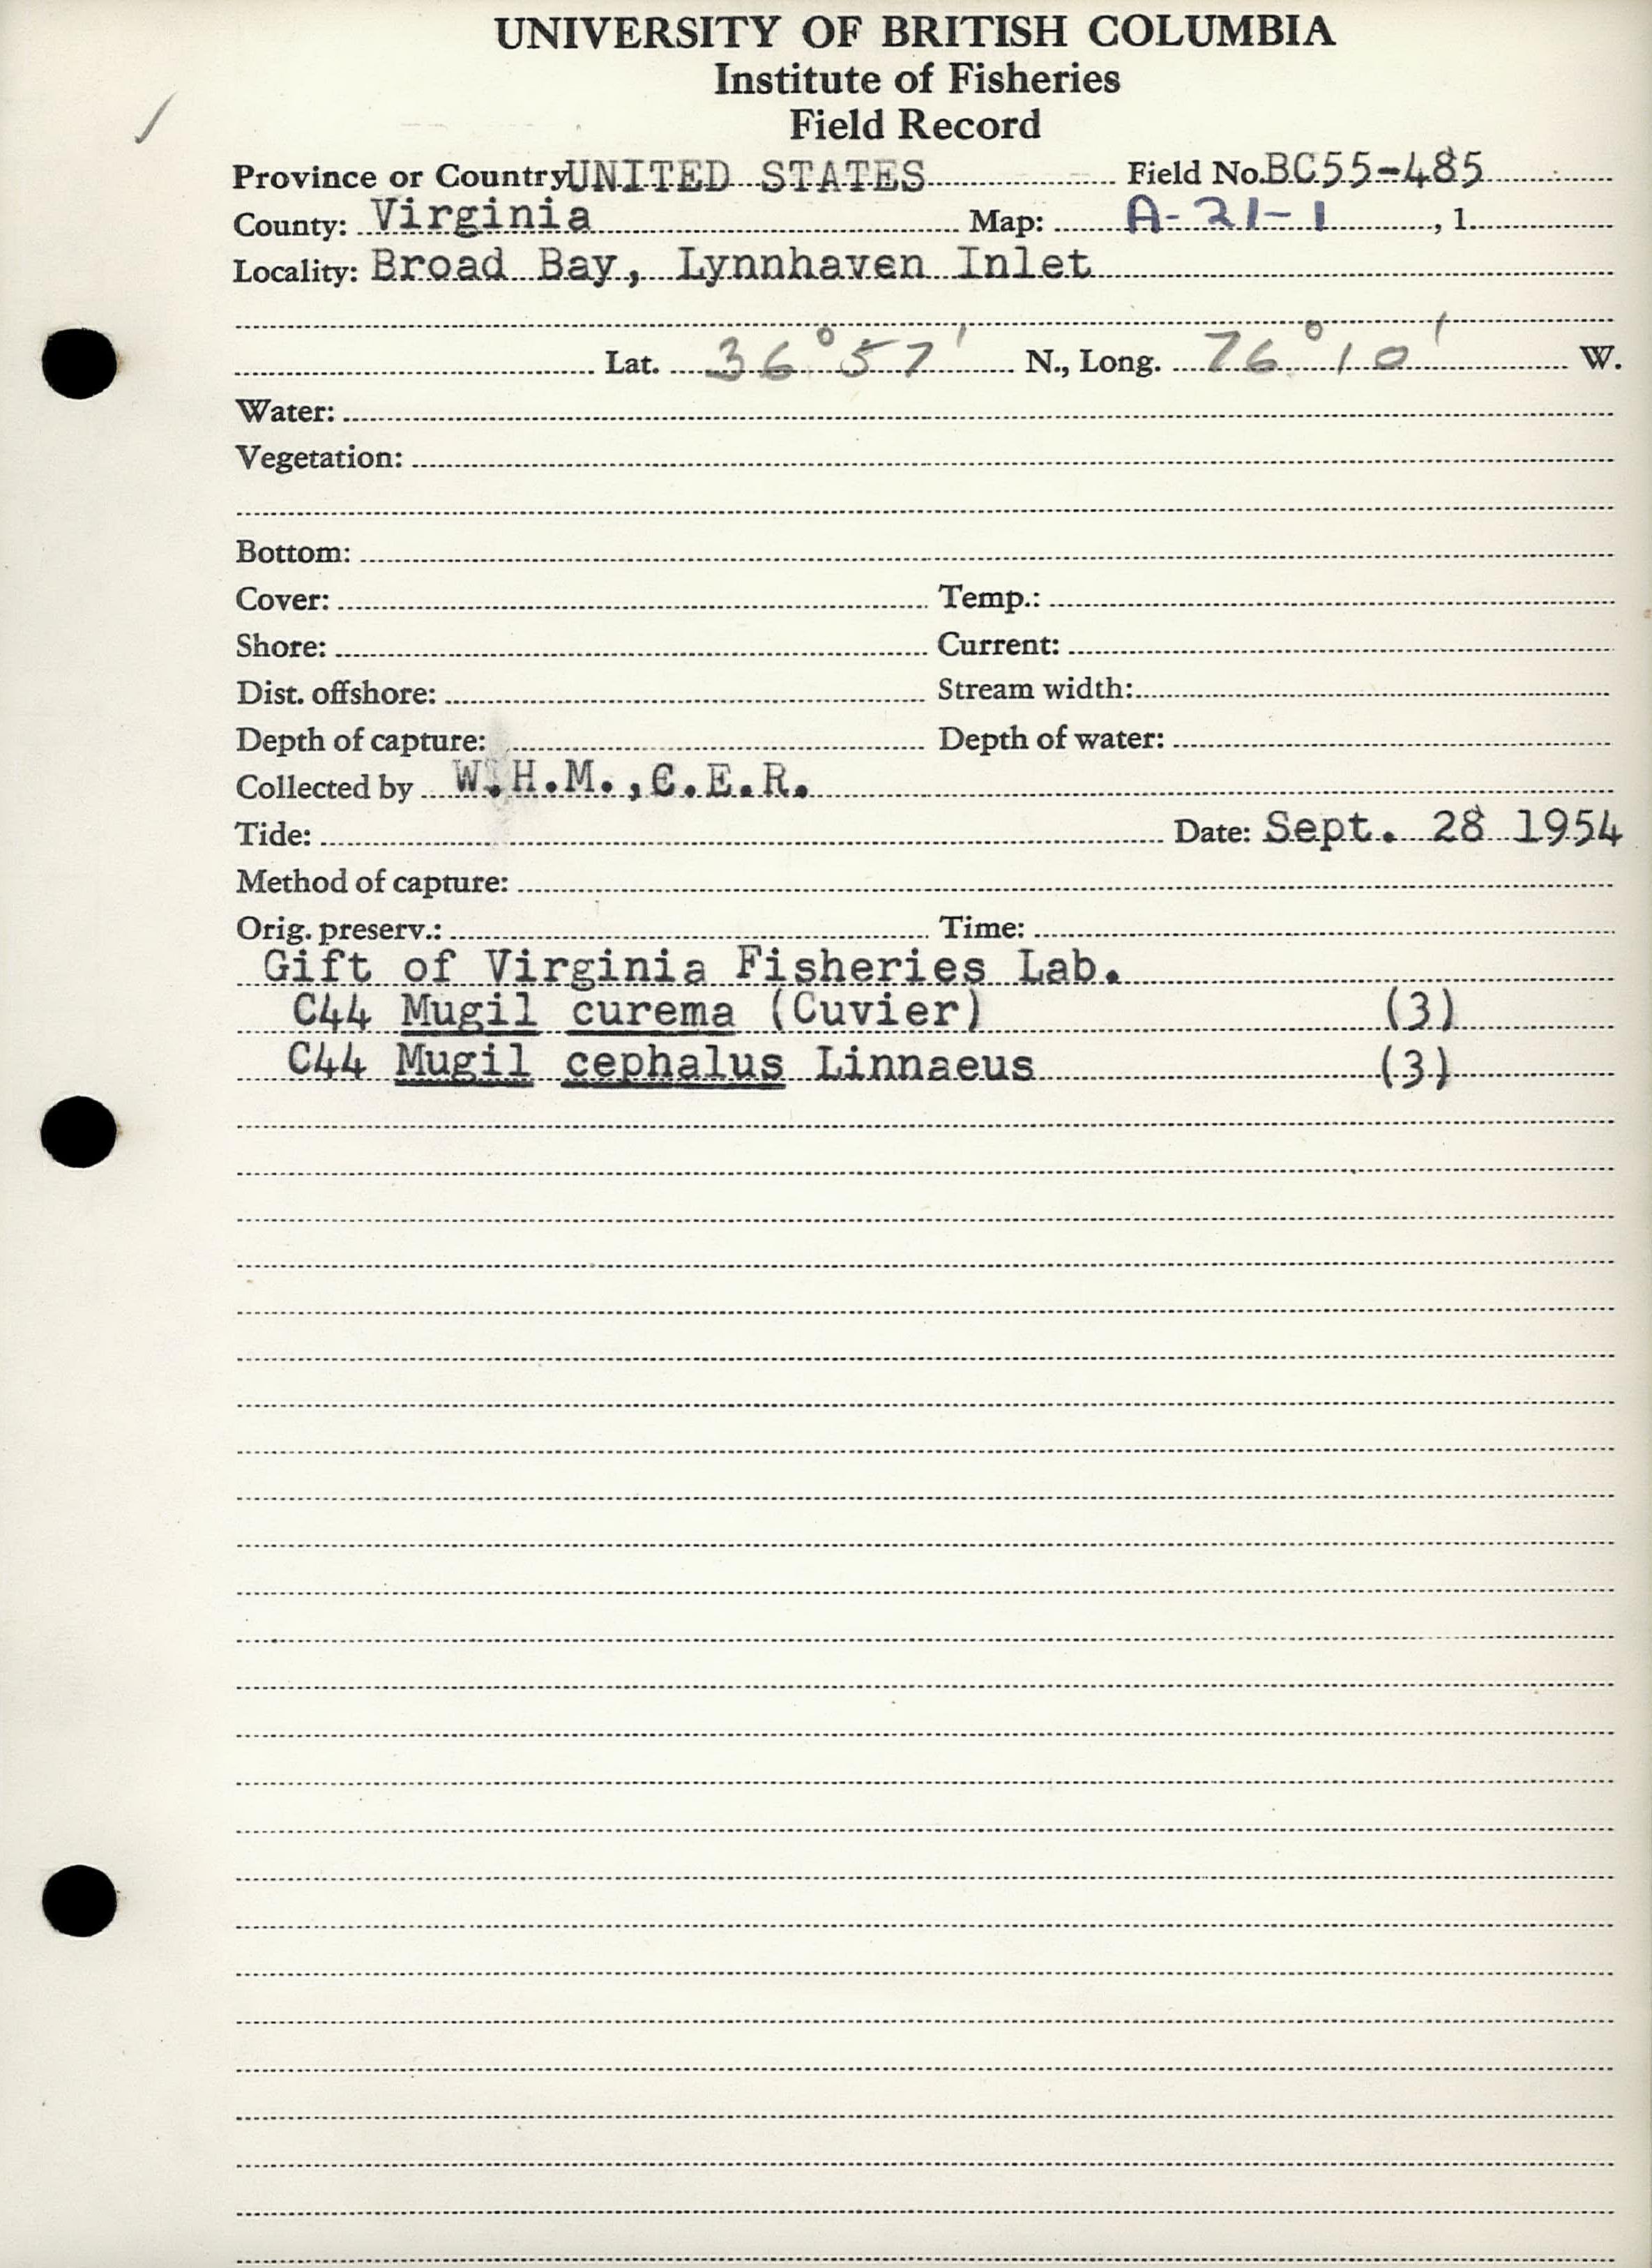 UNIVERSITY OF BRITISH COLUMBIA
Institute of Fisheries
Field Record
Province or Country UNITED STATES Field No. BC55-485
County: Virginia Map: A-21-1, 1
Locality: Broad Bay, Lynnhaven Inlet
Lat. 36°57' N., Long. 76°10' W.
Water:
Vegetation:
Bottom:
Cover: Temp.:
Shore: Current:
Dist. offshore: Stream width:
Depth of capture: Depth of water:
Collected by W.H.M.,C.E.R.
Tide: Date: Sept. 28 1954
Method of capture:
Orig. preserv.: Time:
Gift of Virginia Fisheries Lab.
C44 Mugil curema (Cuvier) (3)
C44 Mugil cephalus Linnaeus (3)